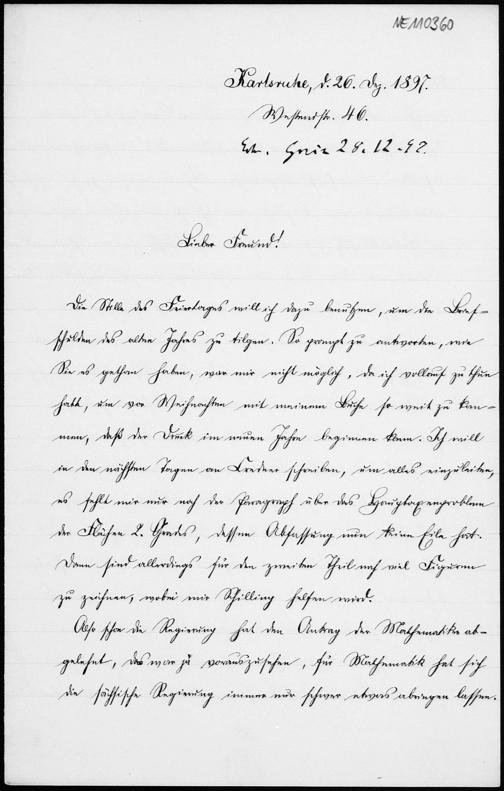 NE110360
Karlsruhe, d. 26. Dez. 1897.
Westendstr. 46.
28.12.97.
Lieber Freund!
Die Stille des Feiertages will ich dazu benutzen, um die Brief-
schulden des alten Jahres zu tilgen. So prompt zu antworten, wie
Sie es gethan haben, war mir nicht möglich, da ich vollauf zu thun
hatte, um vor Weihnachten mit meinem Buche so weit zu kom-
men, daß der Druck im neuen Jahre beginnen kann. Ich will
in den nächsten Tagen an Credner schreiben, um alles einzuleiten,
es fehlt mir nur noch der Paragraph über das Hauptaxenproblem
der Flächen 2. Grades, dessen Abfassung nun keine Eile hat.
Dann sind allerdings für den zweiten Theil noch viel Figuren
zu zeichnen, wobei mir Schilling helfen wird.
Also schon die Regierung hat den Antrag der Mathematiker ab-
gelehnt, das war ja vorauszusehen, für Mathematik hat sich
die sächsische Regierung immer nur schwer etwas abringen lassen.